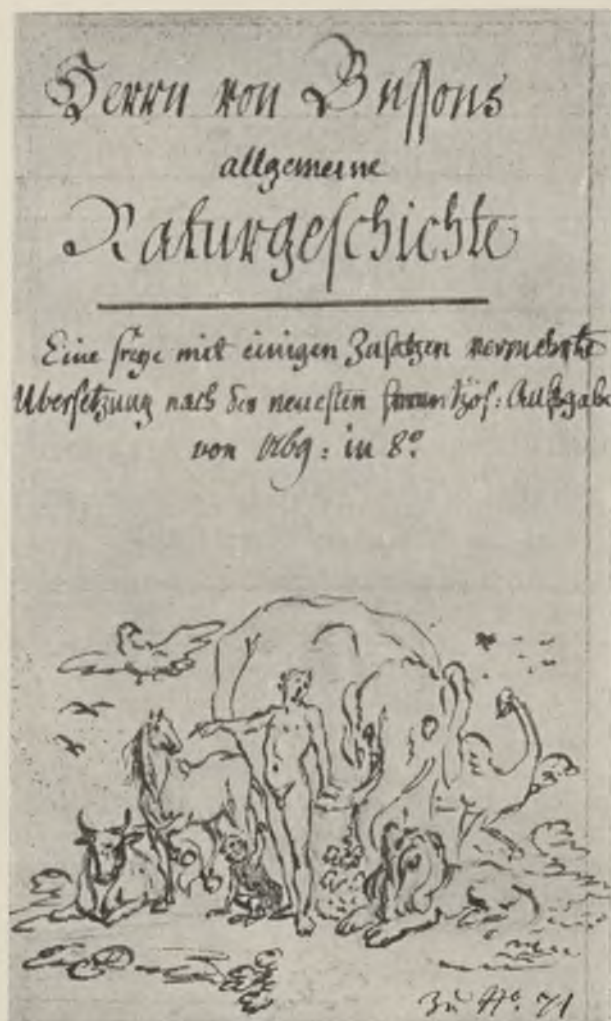 Herrn von Buffons
allgemeine
Naturgeschichte
Eine freye mit einigen Zusätzen vermehrte
Übersetzung nach der neuesten französ: Außgabe
von 1769: in 8º
zu Nº. 71